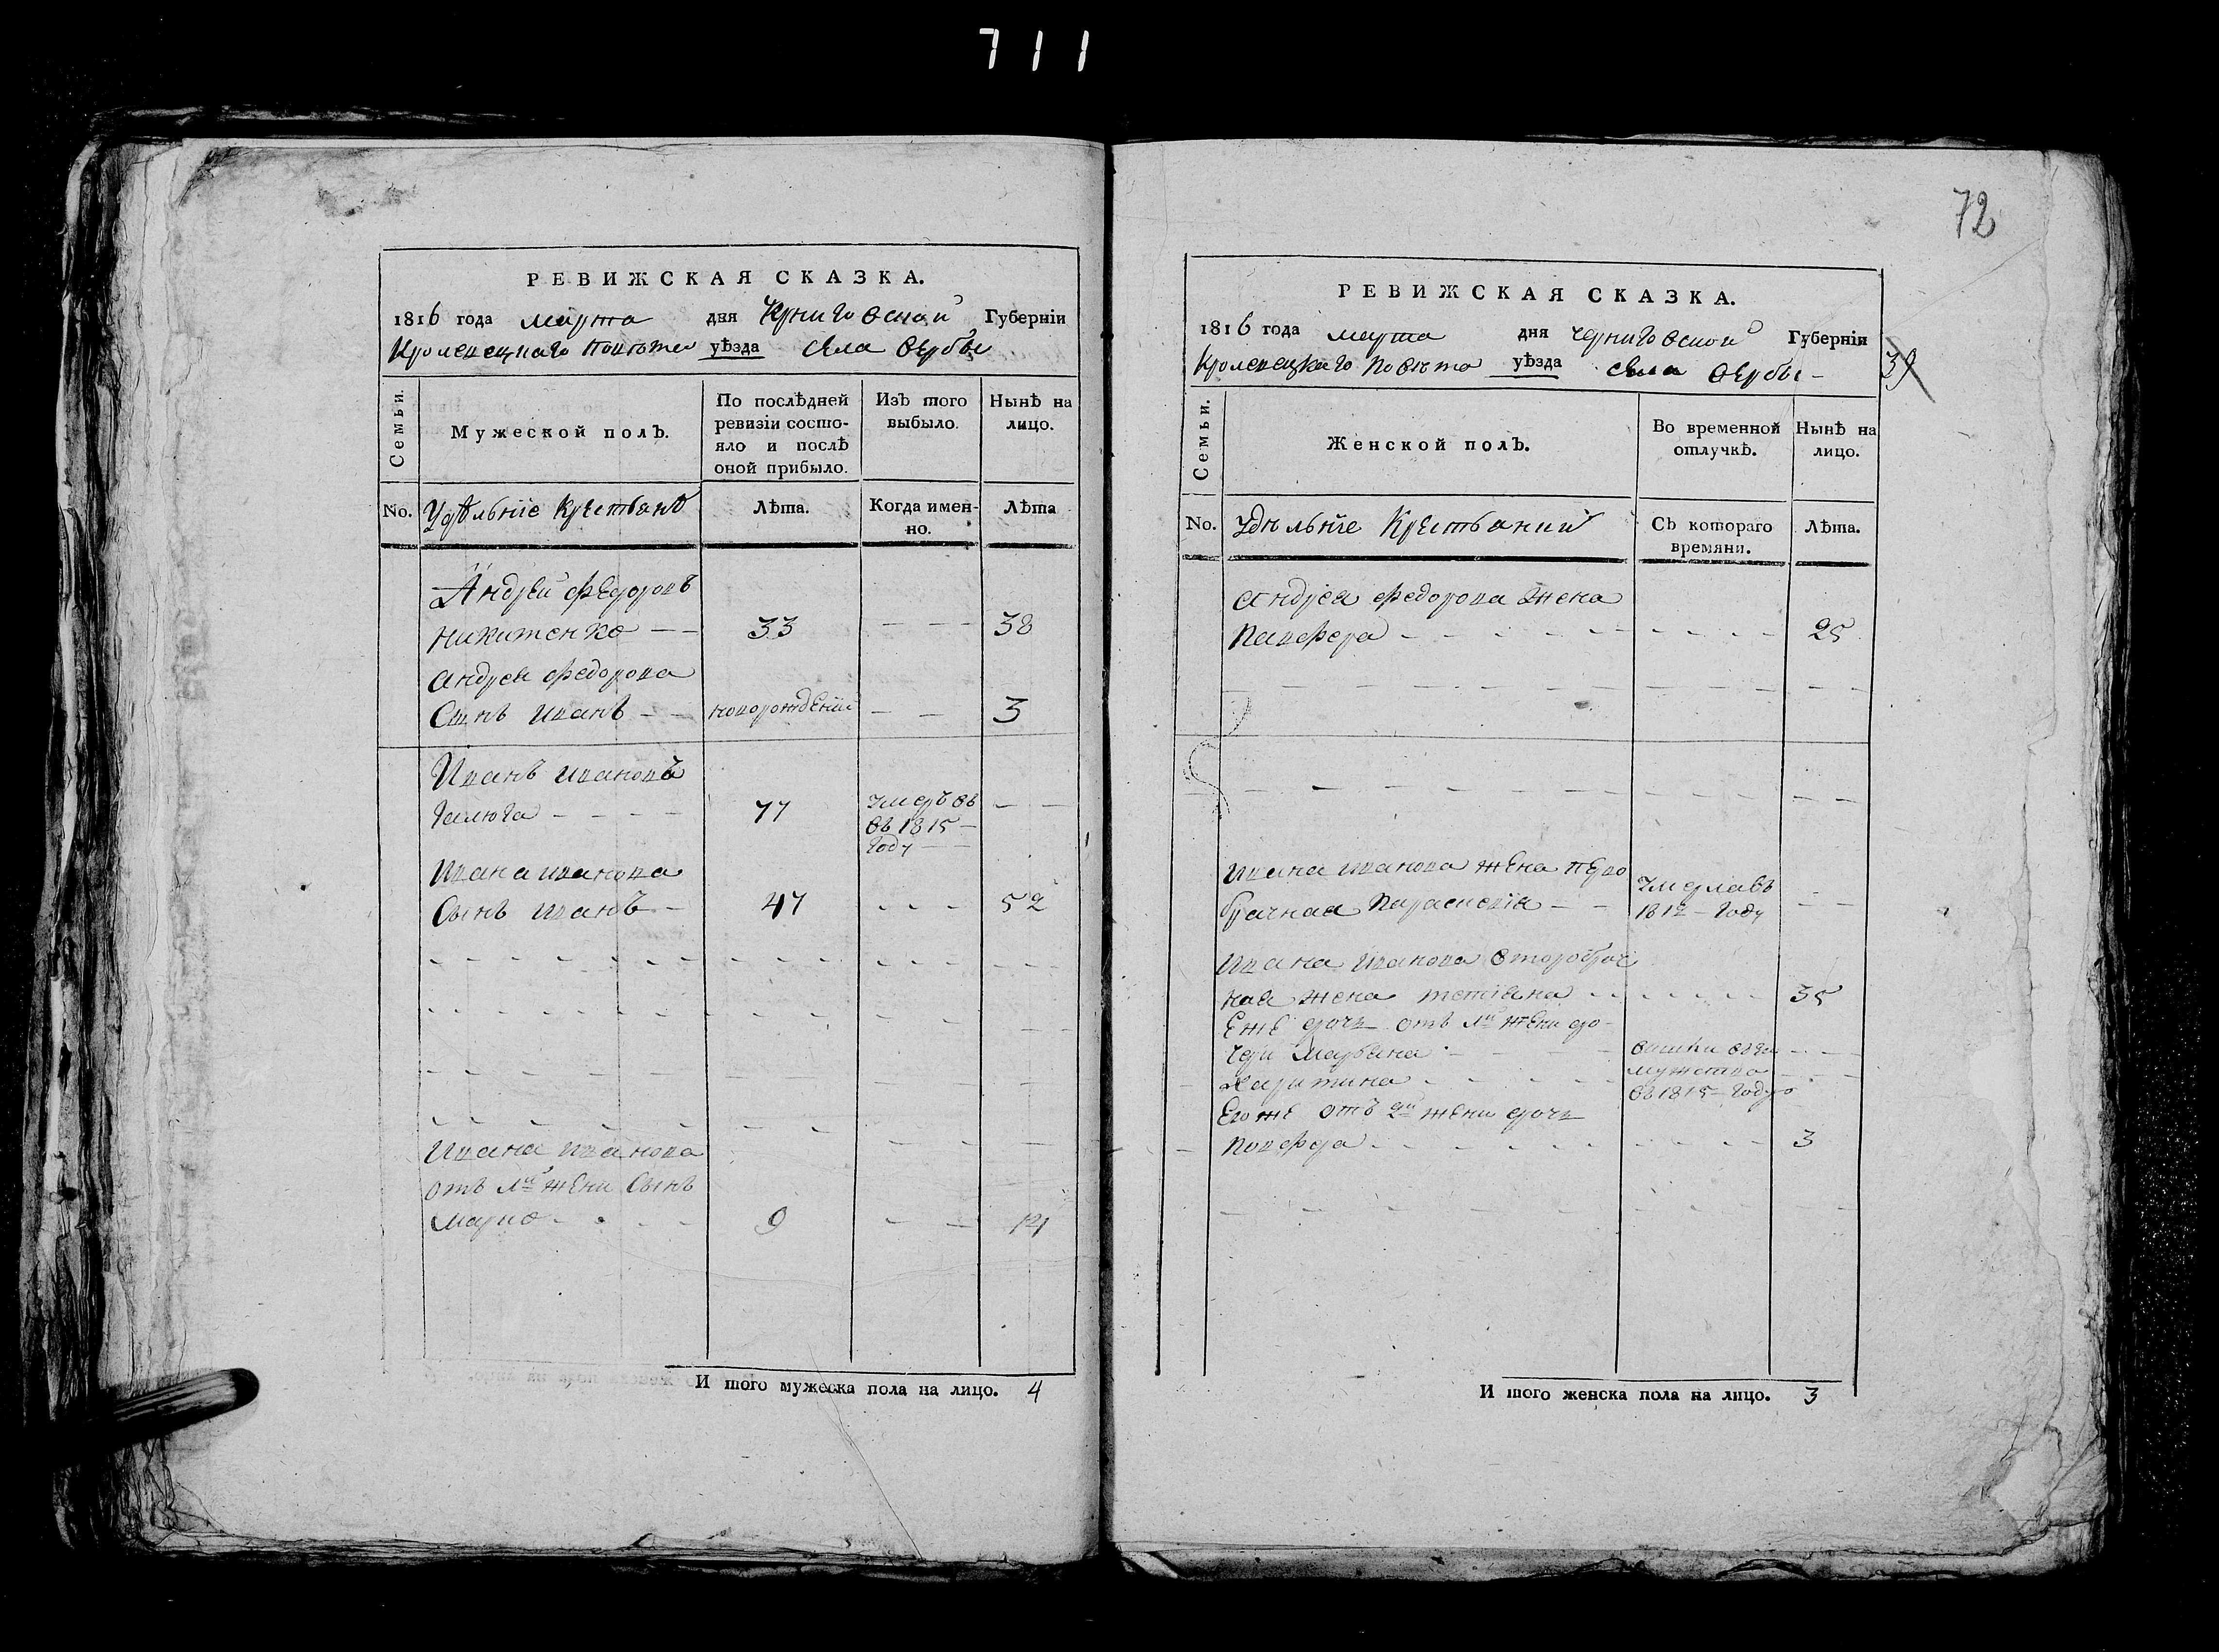 711
72
РЕВИЖСКАЯ СКАЗКА.
1816 года марта дня Черниговской Губерніи
Кролевецкаго Повѣта уѣзда села Вербы
Семьи.
Мужеской полъ.
По послѣдней ревизіи состояло и послѣ оной прибыло.
Изъ того выбыло.
Нынѣ на лицо.
No. Удѣльніе Крестьянѣ
Лѣта.
Когда именно.
Лѣта
Андрей Федоровъ
Никитенко — — 33 — — — 38
Андрея Федорова
Сынъ Иванъ — — новорожденій — — 3
Иванъ Ивановъ
Галюга — — — — 77 умеръ въ — —
въ 1815 —
году — —
Ивана Иванова
Сынъ Иванъ — 47 - - - 52
Ивана Иванова
отъ 1й жени Сынъ
Марко - - - - 9 — — 14
И того мужеска пола на лицо. 4
РЕВИЖСКАЯ СКАЗКА.
1816 года марта дня Черниговской Губерніи
Кролевецкаго Повѣта уѣзда села Вербы —
39
Семьи.
Женской полъ.
Во временной отлучкѣ.
Нынѣ на лицо.
No. Удѣльніе Крестьяний
Съ котораго времяни.
Лѣта.
Андрея Федорова жена
Павфера - - - - - - - - - 25
Ивана Иванова жена перво
брачная Параскевія — — умерла въ
1812 — году — —
Ивана Иванова второбрач
ная жена Тетіана - - - - - - 35
Его же отъ 1й жени до-
чери Марьяна - — — — вишли въ за — —
Харитина - - - - - мужство — —
въ 1815 — году
Его же отъ 2й жени дочь
Повфера - - - - - - - - - 3
И того женска пола на лицо. 3